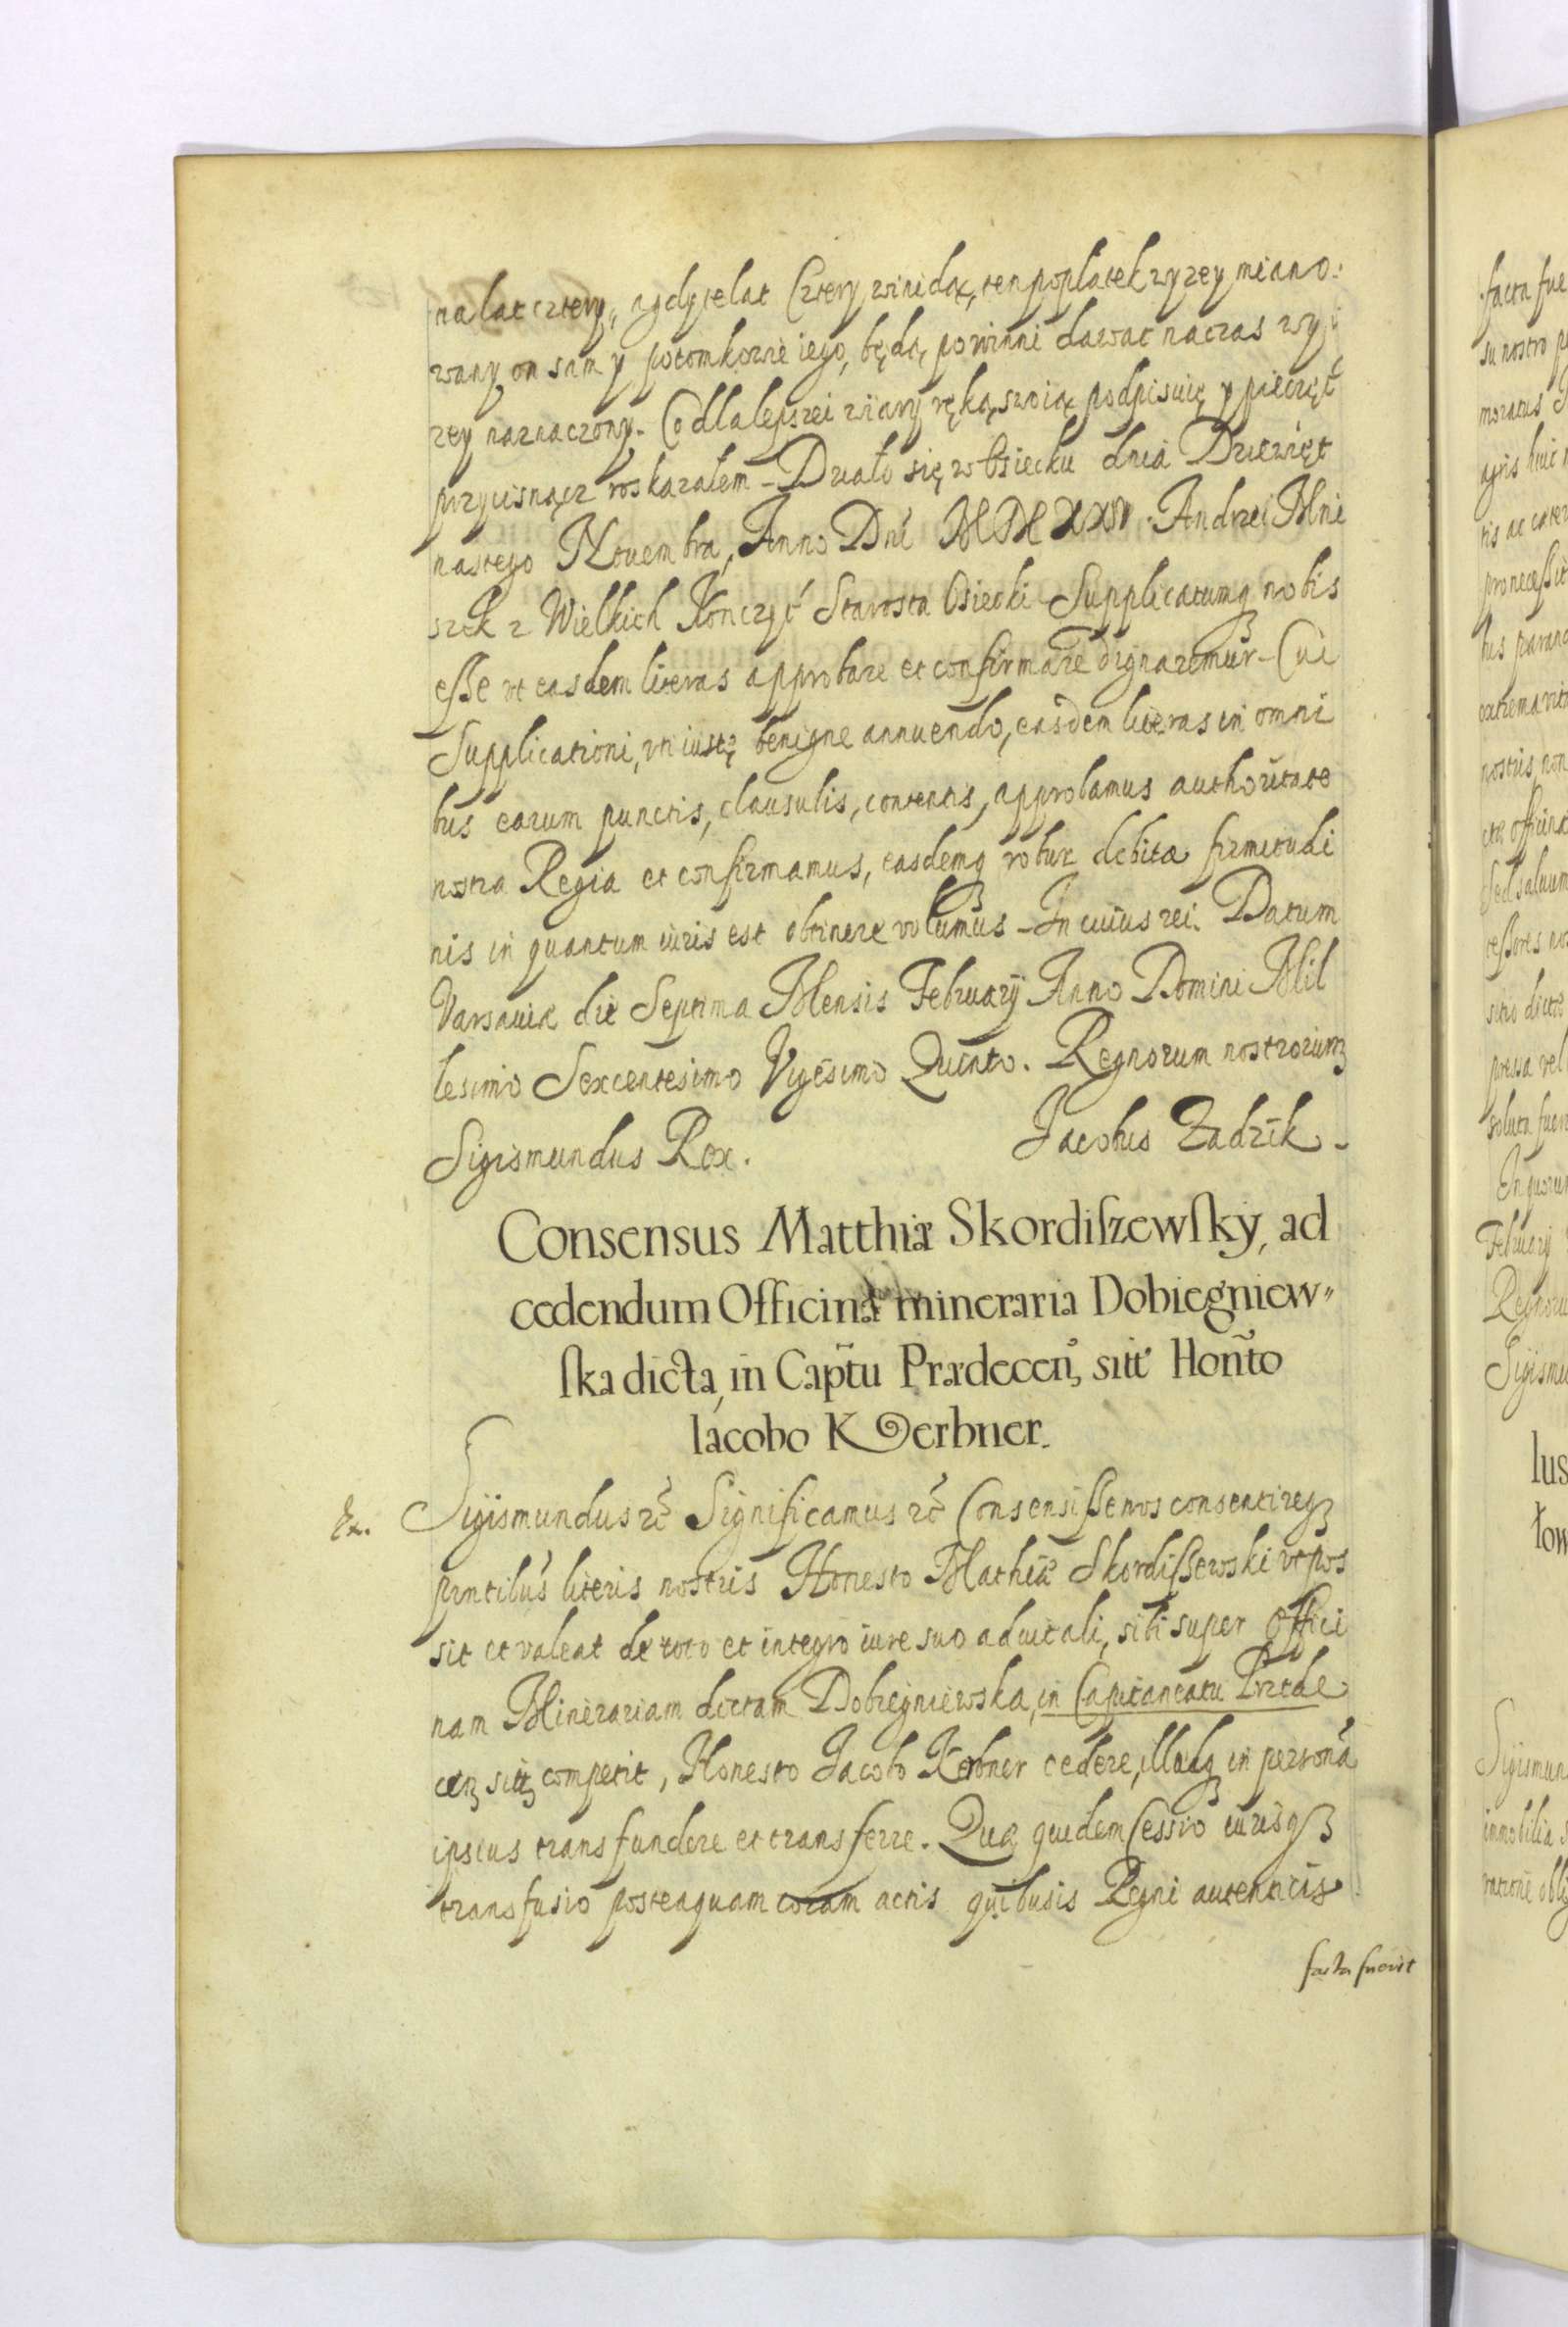 na lat cztery, a gdy te lat Cztery winidą, ten popłatek wyzey miano:
wany on sam y potomkowie iego, będą powinni dawac na czas wy
zey naznaczony. Co dla lepszei wiary ręką swoią podpisuię y pieczęć
przycisnącz roskazałem - Działo się w Osiecku dnia Dziewięt
nastego Nouembra, Anno Dni Andrzei Mni
szek z Wielkich Kończyć Starosta Osiecki Supplicatumq nobis
eſse vt easdem literas approbare et confirmare dignaremur - Cui
Supplicationi, vti iustę benigne annuendo, easdem literas in omni
bus earum punctis, clausulis, contentis, approbamus authoritate
nostra Regia et confirmamus, easdemq robur debitæ firmitudi
nis in quantum iuris est obtinere volumus - In cuius rei. Datum
Varsauiæ die Septima Mensis Februarij Anno Domini Mil
lesimo Sexcentesimo Vigesimo Quinto. Regnorum nostrorum
Sigismundus Rex. Jacobus Zadzik.
Consensus Matthiæ Skordiſzewſky, ad
cedendum Officina mineraria Dobiegniew"
ſka dicta, in Capt̃u Prædecen̄, sitt Hon̄to
Iacobo Kerbner.
Ex. Sigismundus &c Significamus &c Consensiſse nos consentireq
pn̄tibus literis nostris Honesto Mathiæ Skordiſsewski vt pos
sit et valeat de toto et integro iure suo aduitali, sibi super Offici
nam Minerariam dictam Dobiegniewska, in Capitaneatu Przede
cen sitt competit, Honesto Jacobo Kerbner cedere, illudq in personā
ipsius transfundere et transferre. Quæ quidem Cessio iurisq
transfusio posteaquam coram actis quibusis Regni autenticis
facta fuerit
facta fue
su nostro
moratus
agris huic
tis ac ceter
pro neceſsit
his parand
extrema vita
nostris, non
cte officinæ
Sed saluum
ceſsores no
sitio dictæ
preſsa vel
soluta fuer
In quorum
Februarij
Regnoru
Sigismu
Ius
łow
Sigismun
immobilia
ratione obli